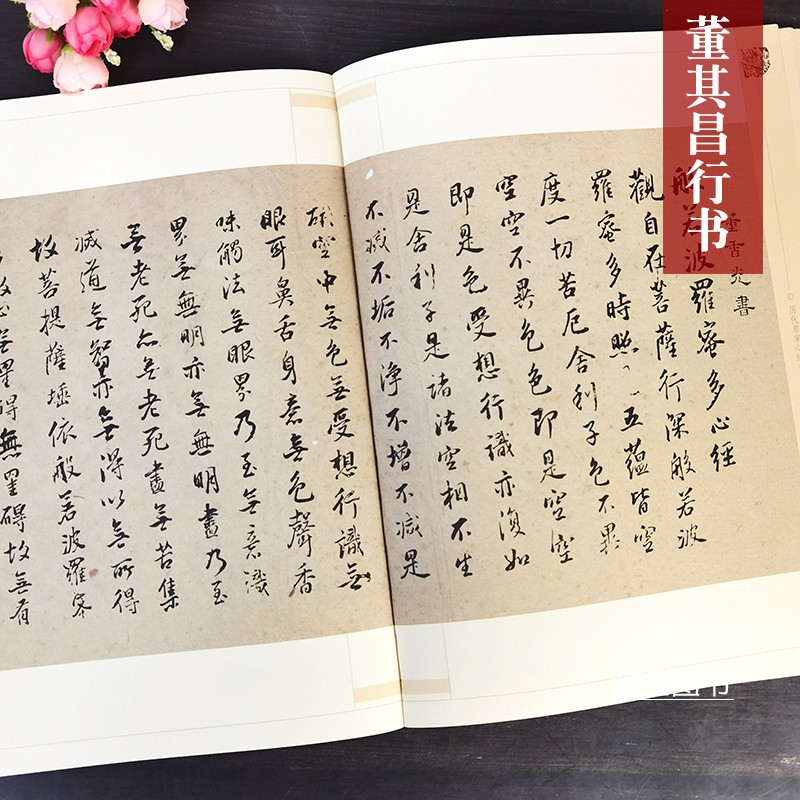 董其昌行书
董香光書
般若波羅蜜多心經
觀自在菩薩行深般若波
羅蜜多時照五蘊皆空
度一切苦厄舍利子色不異
空空不異色色即是空空
即是色受想行識亦復如
是舍利子是諸法空相不生
不滅不垢不淨不增不減是
故空中無色無受想行識無
眼耳鼻舌身意無色聲香
味觸法無眼界乃至無意識
界無無明亦無無明盡乃至
無老死亦無老死盡無苦集
滅道無智亦無得以無所得
故菩提薩埵依般若波羅蜜
多故心無罣碍無罣碍故無有
历代名家
图书